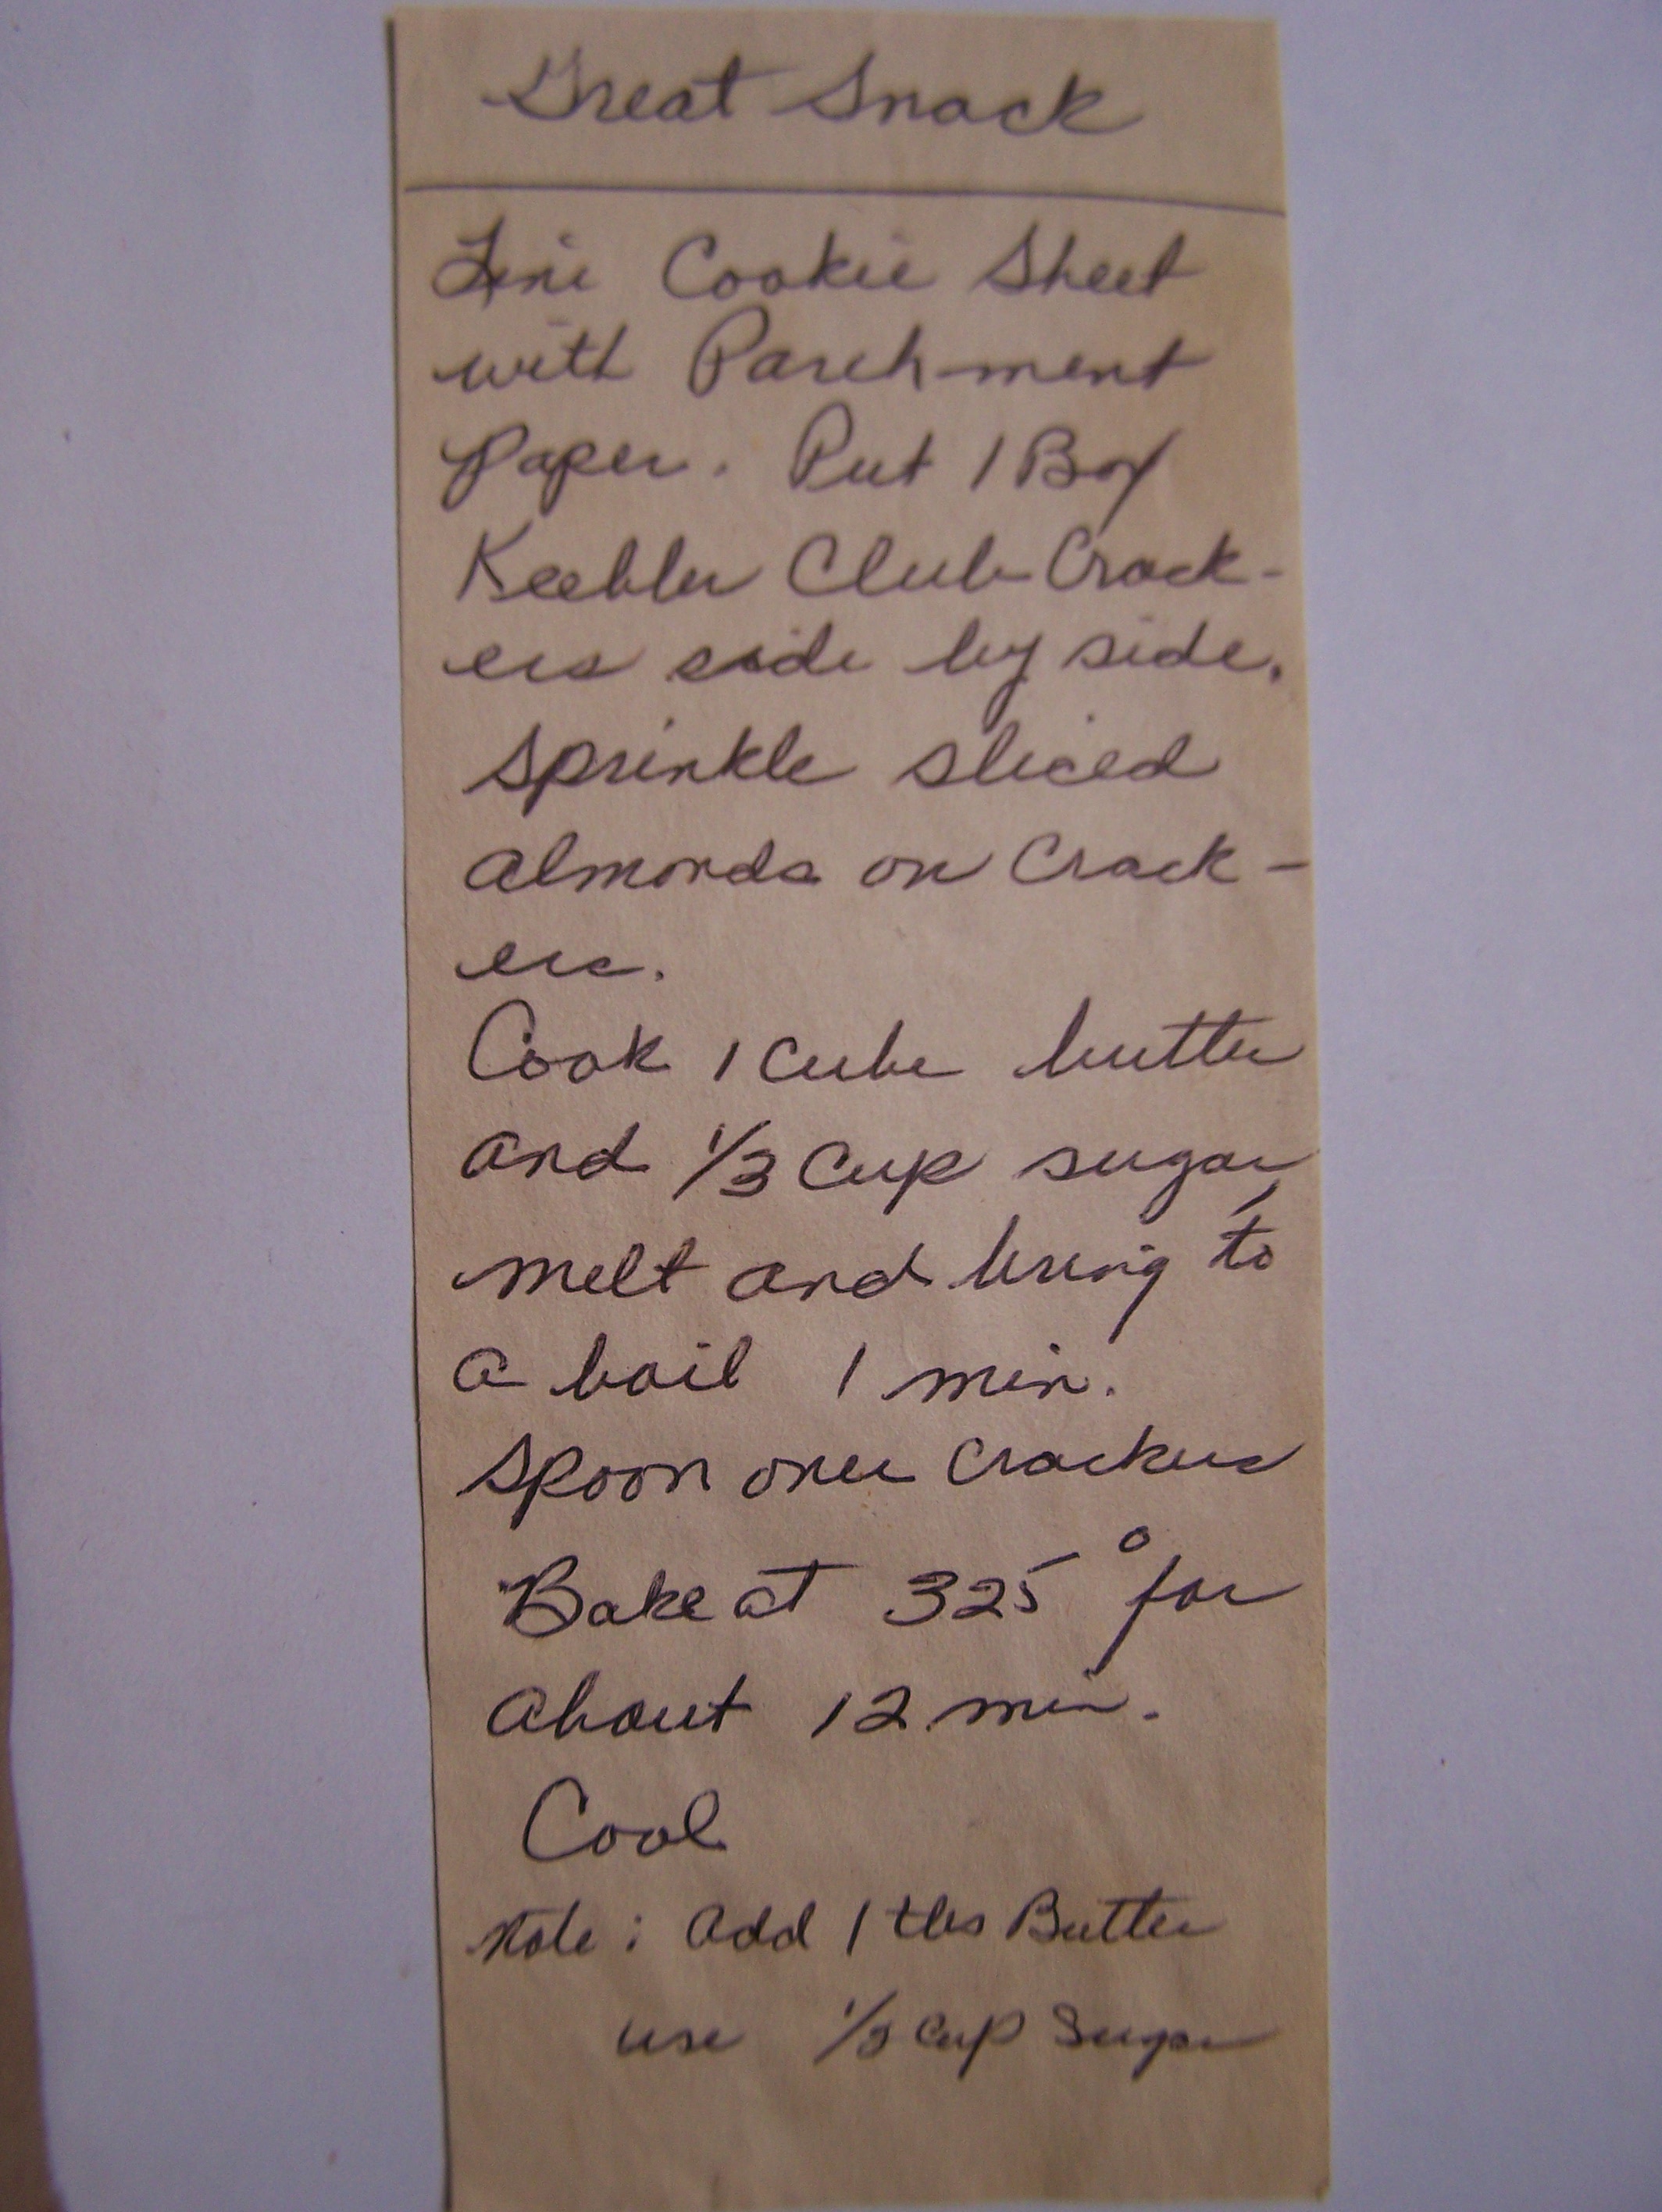 Great Snack
Line Cookie Sheet
with Parch-ment
Paper. Put 1 Box
Keebler Club Crack-
ers side by side.
Sprinkle sliced
almonds on Crack-
ers.
Cook 1 Cube butter
and 1/3 Cup sugar,
melt and bring to
a boil 1 min.
Spoon over Crackers
Bake at 325° for
about 12 min.
Cool
Note: Add 1 tbs Butter
use 1/3 cup Sugar